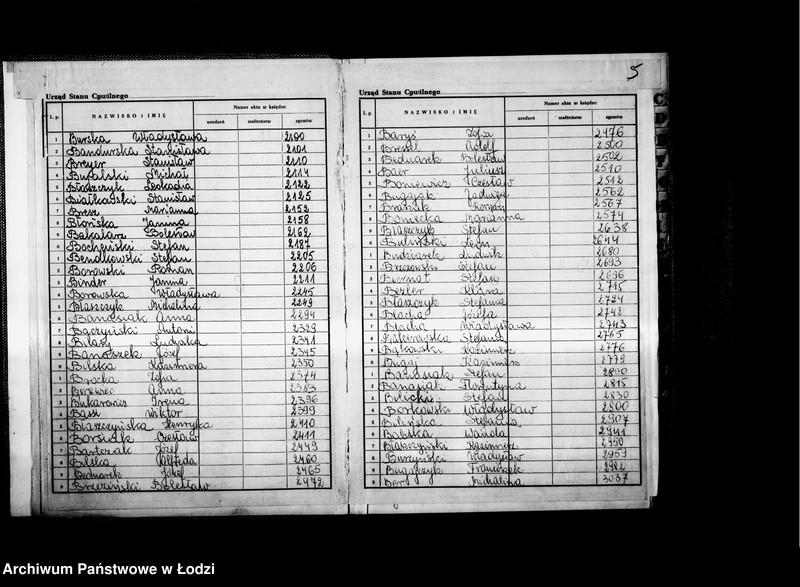 5
Urząd Stanu Cywilnego
L.p. NAZWISKO i IMIĘ Numer aktu w księdze:
urodzeń małżeństw zgonów
1 Burska Władysława 2100
2 Bandurska Stanisława 2101
3 Breyer Stanisław 2110
4 Bufalski Michał 2114
5 Błaszczyk Leokadia 2122
6 Białkowski Stanisław 2125
7 Bresz Marianna 2152
8 Błońska Janina 2158
9 Bakalarz Bolesław 2162
0 Bocheński Stefan 2187
1 Bendkowski Stefan 2205
2 Borowski Roman 2206
3 Binder Janina 2211
4 Borowska Władysława 2245
5 Błaszczyk Michalina 2249
6 Banasiak Anna 2294
7 Bączyński Antoni 2329
8 Bilasz Ludwika 2341
9 Banaszek Józef 2345
0 Bilska Kazimiera 2350
1 Brocka Zofia 2374
2 Anna 2383
3 Irena 2396
4 Bass Wiktor 2399
5 Błaszczyńska Henryka 2410
6 Borsiak Czesław 2411
7 Bartczak Józef 2449
8 Bilska Alfreda 2460
9 Bednarek Józef 2465
0 Brzeziński Bolesław 2472
Urząd Stanu Cywilnego
L.p. NAZWISKO i IMIĘ Numer aktu w księdze:
urodzeń małżeństw zgonów
1 Baryś Zofia 2476
2 Adolf 2500
3 Bednarek Bolesław 2502
4 Baer Juliusz 2510
5 Boniewicz Czesław 2512
6 Bugajak Jadwiga 2562
7 2567
8 Pomecka Marianna 2574
9 Błaszczyk Stefan 2638
0 Buliński Leon 2644
1 Budziarek Ludwik 2680
2 Brzozowski Stefan 2693
3 Biernat Stefan 2696
4 Bezler 2715
5 Błaszczyk Stefania 2724
6 Blacha Józefa 2742
7 Blacha Władysława 2743
8 Stefania 2765
9 Bątkowski Kazimierz 2776
0 Bugaj Kazimierz 2779
1 Banasiak Stefan 2800
2 Banasiak Florentyna 2815
3 Bilecki Stefan 2830
4 Borkowski Władysław 2900
5 Bilińska Stefania 2907
6 Balska Wanda 2941
7 Kazimierz 2950
8 Burzyński Władysław 2959
9 Bugajczyk Franciszek 2982
0 Ber Michalina 3037
Archiwum Państwowe w Łodzi